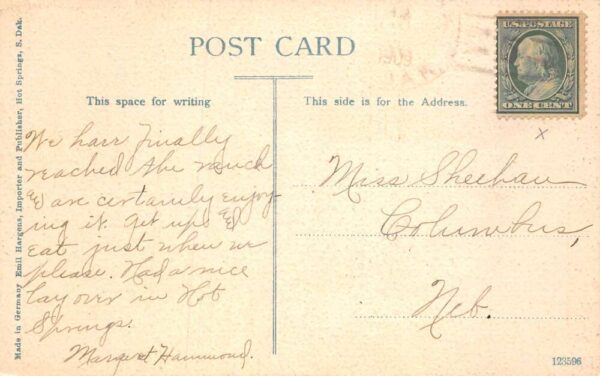 POST CARD
U.S. POSTAGE
ONE CENT
1909
This space for writing
This side is for the Address.
We have finally
reached the ranch
& are certainly enjoy-
ing it. Get up &
eat just when we
please. Had a nice
lay over in Hot
Springs.
Margaret Hammond.
Miss Sheehan
Columbus,
Neb.
x
Made in Germany Emil Hargens, Importer and Publisher, Hot Springs, S. Dak.
123596